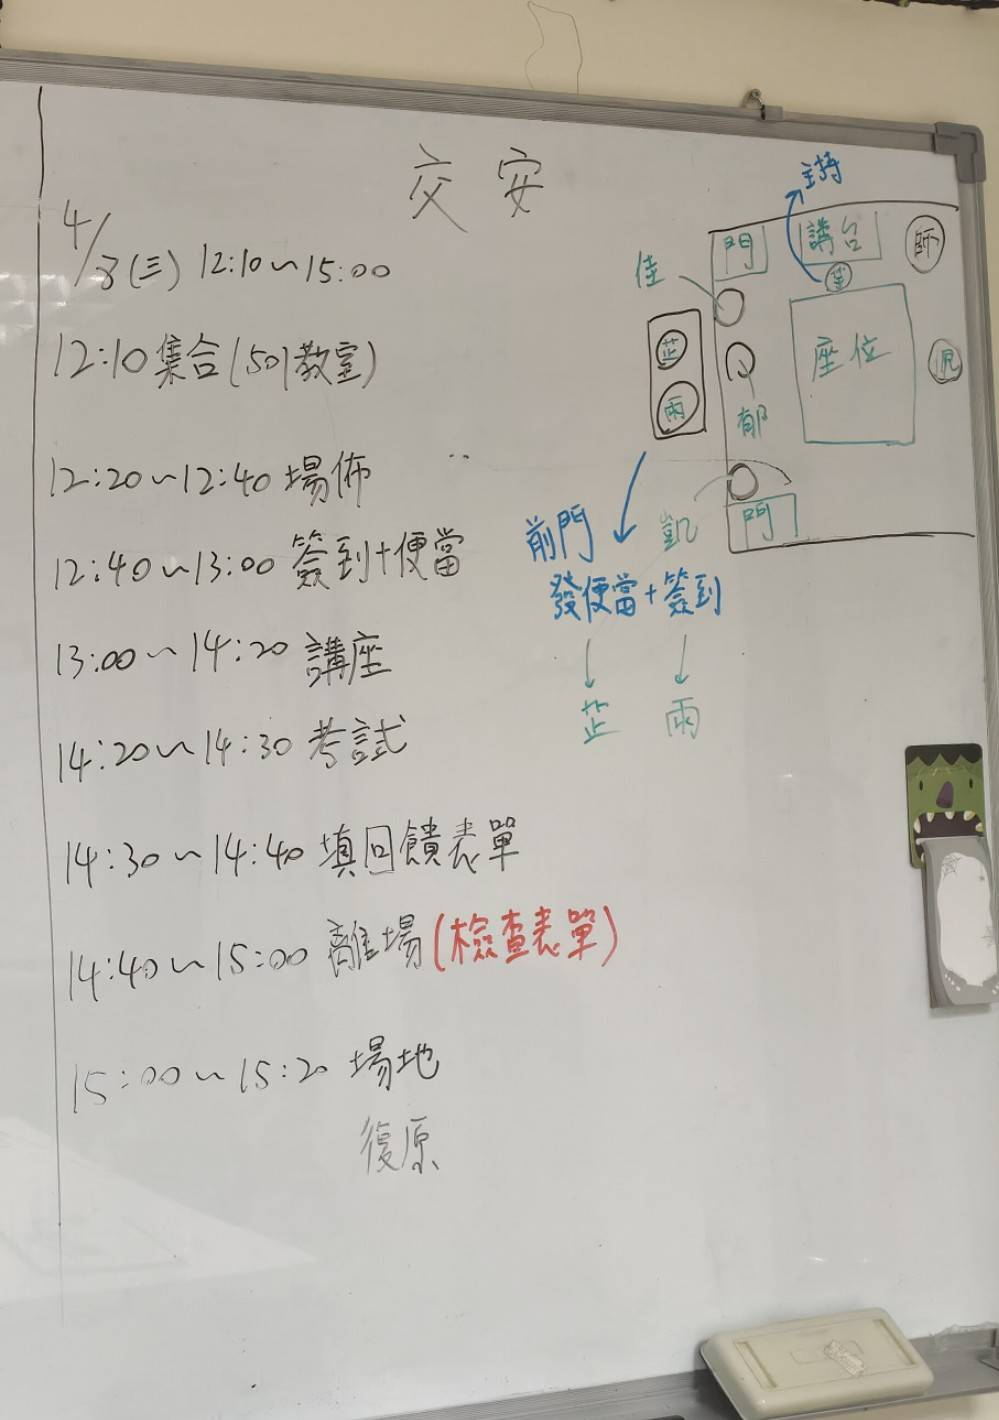 交安
4/8(三) 12:10~15:00
12:10集合(501教室)
12:20~12:40 場佈
12:40~13:00 簽到+便當
13:00~14:20 講座
14:20~14:30 考試
14:30~14:40 填回饋表單
14:40~15:00 離場(檢查表單)
15:00~15:20 場地
復原
主持
門
講台
師
佳
芷
雨
座位
郁
凱
門
前門
發便當+簽到
芷
雨